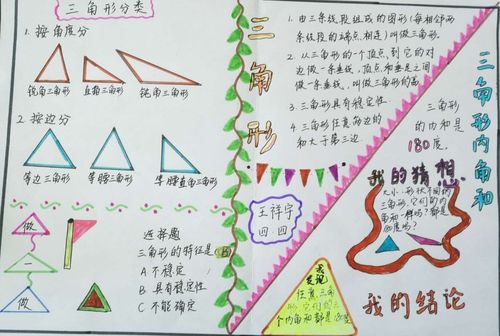 三角形分类
1. 按角度分
锐角三角形
直角三角形
钝角三角形
2. 按边分
等边三角形
等腰三角形
等腰直角三角形
做
做
选择题
三角形的特征是 B
A 不稳定
B 具有稳定性
C 不能确定
三角形
1. 由三条线段组成的图形(每相邻两
条线段的端点相连)叫做三角形.
2. 从三角形的一个顶点到它的对
边做一条垂线,顶点和垂足之间
做一条垂线,叫做三角形的高
3. 三角形具有稳定性
4 三角形任意两边的
和大于第三边
王祥宇
四.四
我发现
任意三角
形,它们的三
个内角和都是180度
三角形内角和
三角形
的内和是
180度.
我的猜想
大小、形状不同的
三角形,它们的内
角和一样吗?都是
180度吗?
我的结论